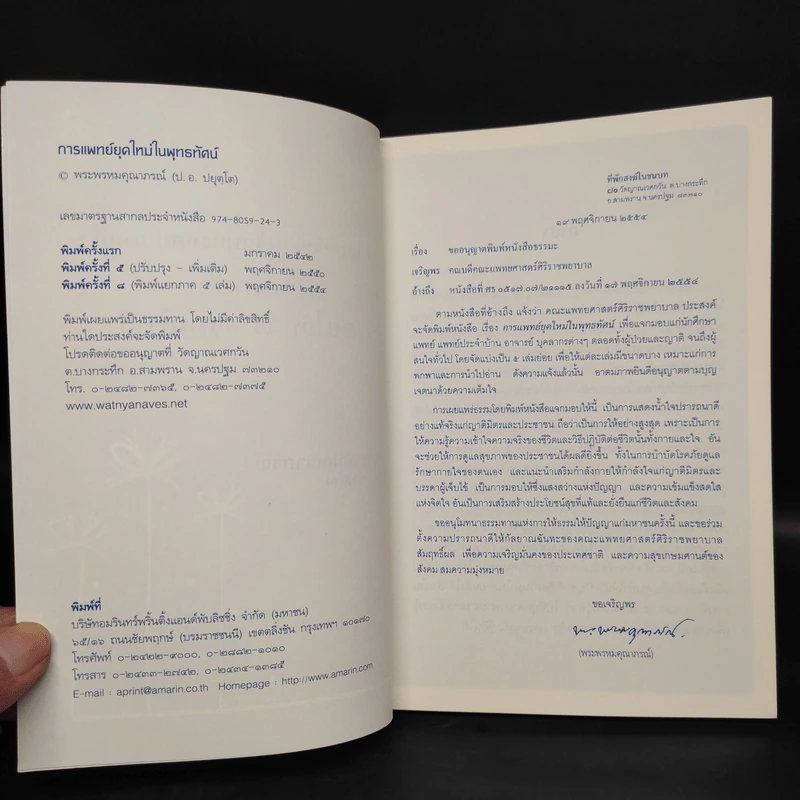 การแพทย์ยุคใหม่ในพุทธทัศน์
© พระพรหมคุณาภรณ์ (ป. อ. ปยุตฺโต)
เลขมาตรฐานสากลประจำหนังสือ 974-8059-24-3
พิมพ์ครั้งแรก มกราคม ๒๕๔๒
พิมพ์ครั้งที่ ๕ (ปรับปรุง - เพิ่มเติม) พฤศจิกายน ๒๕๕๐
พิมพ์ครั้งที่ ๘ (พิมพ์แยกภาค ๕ เล่ม) พฤศจิกายน ๒๕๕๔
พิมพ์เผยแพร่เป็นธรรมทาน โดยไม่มีค่าลิขสิทธิ์
ท่านใดประสงค์จะจัดพิมพ์
โปรดติดต่อขออนุญาตที่ วัดญาณเวศกวัน
ต.บางกระทึก อ.สามพราน จ.นครปฐม ๗๓๒๑๐
โทร. ๐-๒๔๘๒-๗๓๖๕, ๐-๒๔๘๒-๗๓๗๕
www.watnyanaves.net
พิมพ์ที่
บริษัทอมรินทร์พริ้นติ้งแอนด์พับลิชชิ่ง จำกัด (มหาชน)
๖๕/๑๖ ถนนชัยพฤกษ์ (บรมราชชนนี) เขตตลิ่งชัน กรุงเทพฯ ๑๐๑๗๐
โทรศัพท์ ๐-๒๔๒๒-๙๐๐๐, ๐-๒๘๘๒-๑๐๑๐
โทรสาร ๐-๒๔๓๓-๒๗๔๒, ๐-๒๔๓๔-๑๓๘๕
E-mail : aprint@amarin.co.th Homepage : http://www.amarin.com
ที่พักสงฆ์ในชนบท
วัดญาณเวศกวัน ต.บางกระทึก
อ.สามพราน จ.นครปฐม ๗๓๒๑๐
๑๙ พฤศจิกายน ๒๕๕๔
เรื่อง ขออนุญาตพิมพ์หนังสือธรรมะ
เจริญพร คณบดีคณะแพทยศาสตร์ศิริราชพยาบาล
อ้างถึง หนังสือที่ ศธ ๐๕๑๗.๐๗/๒๑๑๑๕ ลงวันที่ ๑๗ พฤศจิกายน ๒๕๕๔
ตามหนังสือที่อ้างถึง แจ้งว่า คณะแพทยศาสตร์ศิริราชพยาบาล ประสงค์
จะจัดพิมพ์หนังสือ เรื่อง การแพทย์ยุคใหม่ในพุทธทัศน์ เพื่อแจกมอบแก่นักศึกษา
แพทย์ แพทย์ประจำบ้าน อาจารย์ บุคลากรต่างๆ ตลอดทั้งผู้ป่วยและญาติ จนถึงผู้
สนใจทั่วไป โดยจัดแบ่งเป็น ๕ เล่มย่อย เพื่อให้แต่ละเล่มมีขนาดบาง เหมาะแก่การ
พกพาและการนำไปอ่าน ดังความแจ้งแล้วนั้น อาตมภาพยินดีอนุญาตตามบุญ
เจตนาด้วยความเต็มใจ
การเผยแพร่ธรรมโดยพิมพ์หนังสือแจกมอบให้นี้ เป็นการแสดงน้ำใจปรารถนาดี
อย่างแท้จริงแก่ญาติมิตรและประชาชน ถือว่าเป็นการให้อย่างสูงสุด เพราะเป็นการ
ให้ความรู้ความเข้าใจความจริงของชีวิตและวิธีปฏิบัติต่อชีวิตนั้นทั้งกายและใจ อัน
จะช่วยให้การดูแลสุขภาพของประชาชนได้ผลดียิ่งขึ้น ทั้งในการบำบัดโรคภัยดูแล
รักษากายใจของตนเอง และแนะนำเสริมกำลังกายให้กำลังใจแก่ญาติมิตรและ
บรรดาผู้เจ็บไข้ เป็นการมอบให้ซึ่งแสงสว่างแห่งปัญญา และความเข้มแข็งสดใส
แห่งจิตใจ อันเป็นการเสริมสร้างประโยชน์สุขที่แท้และยั่งยืนแก่ชีวิตและสังคม
ขออนุโมทนาธรรมทานแห่งการให้ธรรมให้ปัญญาแก่มหาชนครั้งนี้ และขอร่วม
ตั้งความปรารถนาดีให้กัลยาณฉันทะของคณะแพทยศาสตร์ศิริราชพยาบาล
สัมฤทธิ์ผล เพื่อความเจริญมั่นคงของประเทศชาติ และความสุขเกษมศานต์ของ
สังคม สมความมุ่งหมาย
ขอเจริญพร
(พระพรหมคุณาภรณ์)